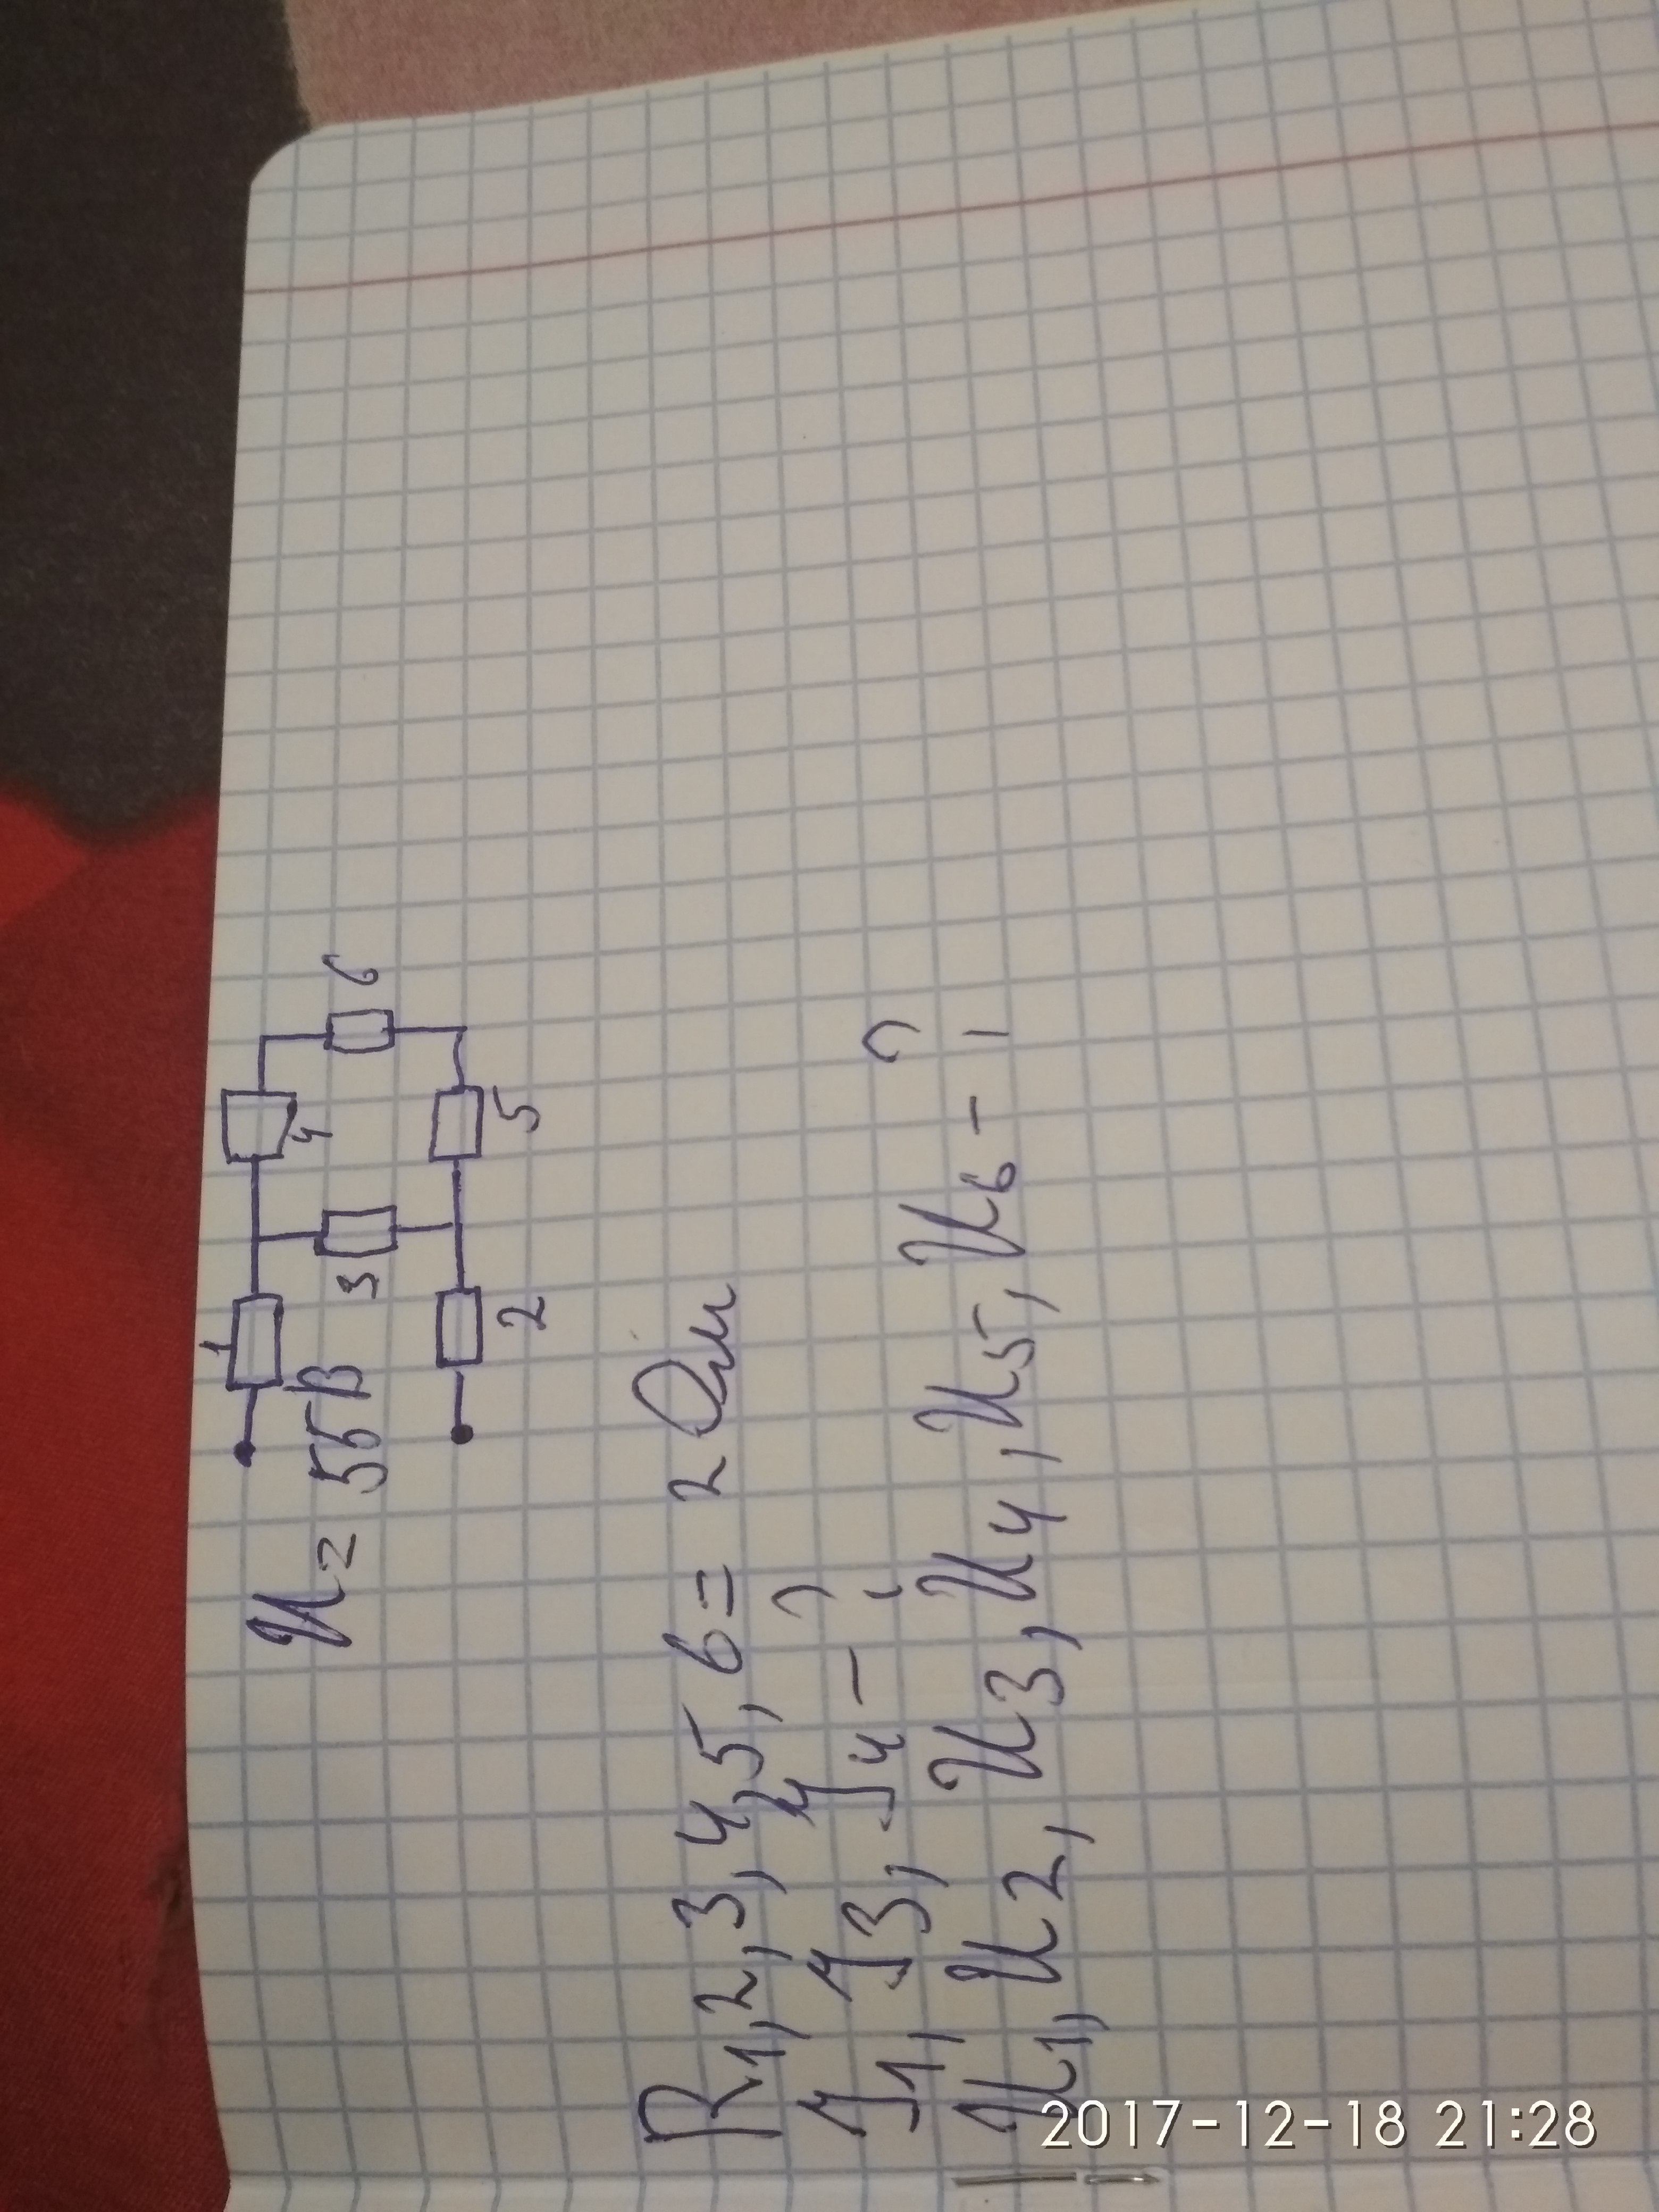 1
4
U = 55В
3
6
2
5
R1,2,3,4,5,6 = 2 Ом
J1, J3, J4 - ?
U1, U2, U3, U4, U5, U6 - ?
2017-12-18 21:28